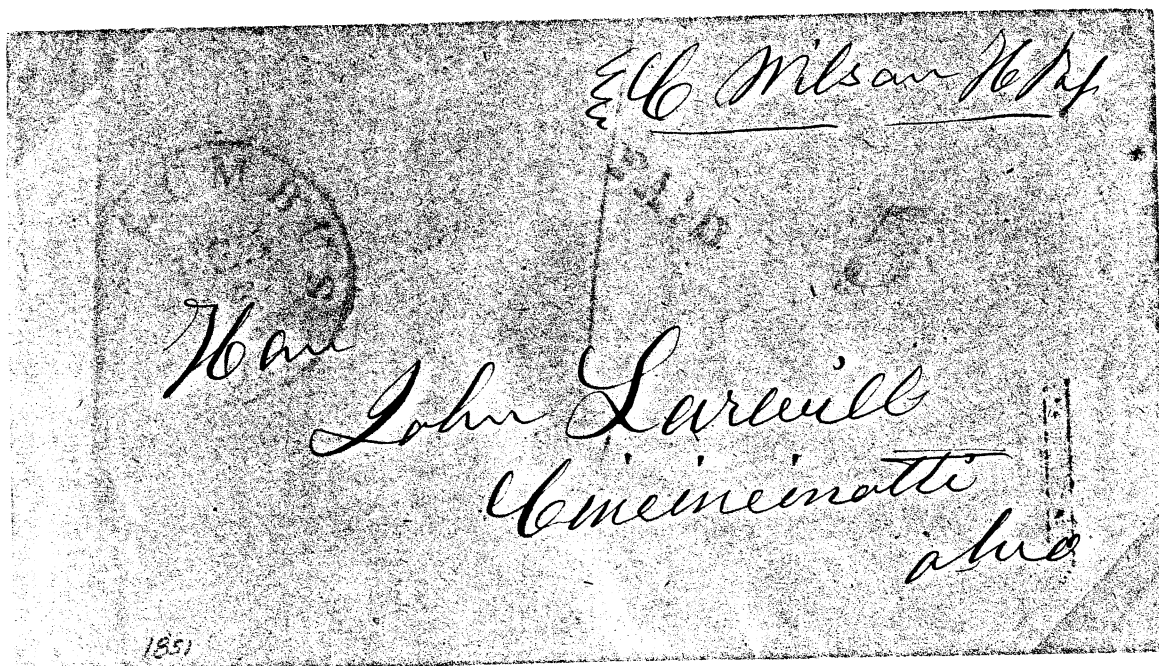 E C Wilson H Rep
COLUMBUS
PAID
5
Hon
John Larwill
Cincincinatti
Ohio
1851